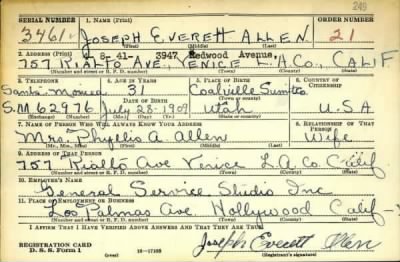 249
SERIAL NUMBER 1. NAME (Print) ORDER NUMBER
3461 JOSEPH EVERETT ALLEN 21
(First) (Middle) (Last)
2. ADDRESS (Print) 8-41- 3947 Redwood Avenue,
757 RIALTO AVE., VENICE L.A.Co., CALIF
(Number and street or R. F. D. number) (Town) (County) (State)
3. TELEPHONE 4. AGE IN YEARS 5. PLACE OF BIRTH 6. COUNTRY OF CITIZENSHIP
Santa Monica 31 Coalville Summit
DATE OF BIRTH (Town or county)
S.M 62976 July 28-1909 Utah U.S.A
(Exchange) (Number) (Mo.) (Day) (Yr.) (State or country)
7. NAME OF PERSON WHO WILL ALWAYS KNOW YOUR ADDRESS 8. RELATIONSHIP OF THAT PERSON
Mrs. Phyllis A. Allen Wife
(Mr., Mrs., Miss) (First) (Middle) (Last)
9. ADDRESS OF THAT PERSON
757 Rialto Ave Venice L.A. Co. Calif
(Number and street or R. F. D. number) (Town) (County) (State)
10. EMPLOYER'S NAME
General Service Studio Inc
11. PLACE OF EMPLOYMENT OR BUSINESS
Los Palmas Ave. Hollywood Calif
(Number and street or R. F. D. number) (Town) (County) (State)
I AFFIRM THAT I HAVE VERIFIED ABOVE ANSWERS AND THAT THEY ARE TRUE.
REGISTRATION CARD
D. S. S. Form 1 (over) 16-17105
Joseph Everett Allen
(Registrant's signature)